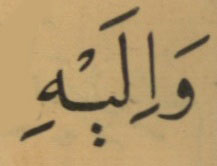 وَاِلَيْهِ